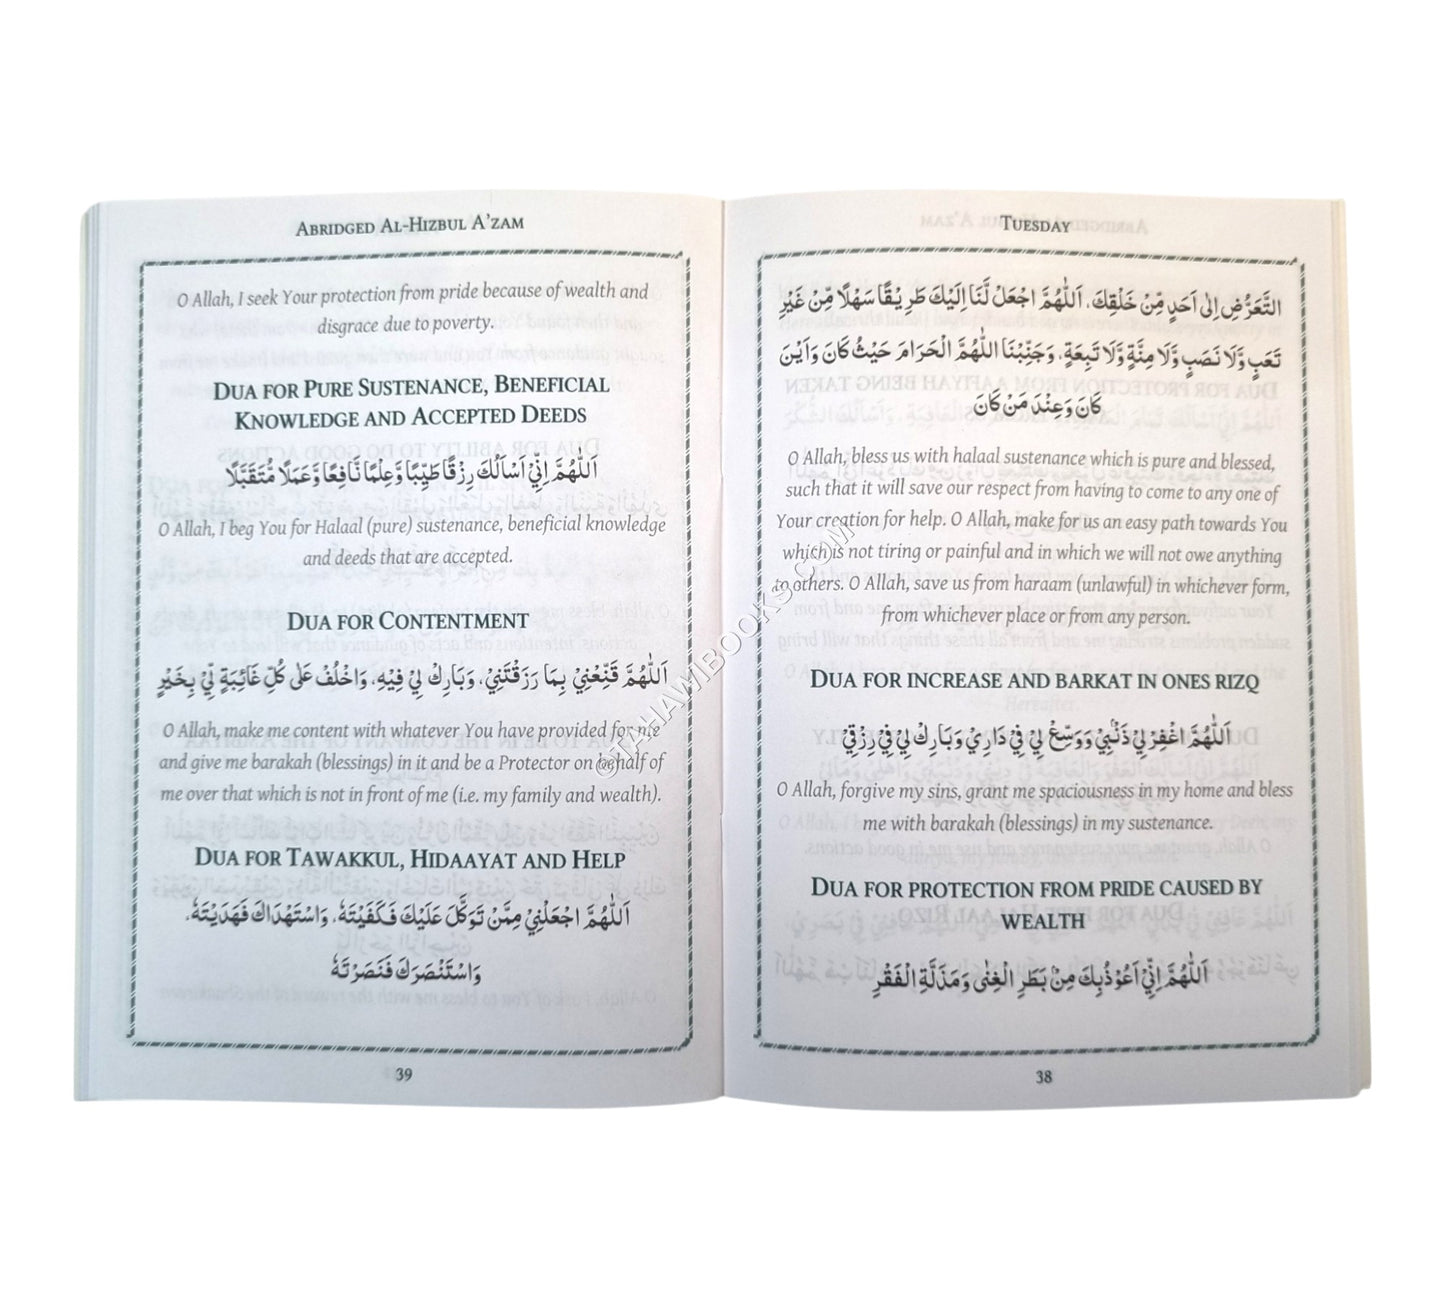 TUESDAY
التَّعَرُّضِ اِلٰى اَحَدٍ مِّنْ خَلْقِكَ، اَللّٰهُمَّ اجْعَلْ لَّنَا اِلَيْكَ طَرِيْقًا سَهْلًا مِّنْ غَيْرِ
تَعَبٍ وَّلَا نَصَبٍ وَّلَا مِنَّةٍ وَّلَا تَبِعَةٍ، وَجَنِّبْنَا اللّٰهُمَّ الْحَرَامَ حَيْثُ كَانَ وَاَيْنَ
كَانَ وَعِنْدَ مَنْ كَانَ
O Allah, bless us with halaal sustenance which is pure and blessed,
such that it will save our respect from having to come to any one of
Your creation for help. O Allah, make for us an easy path towards You
which is not tiring or painful and in which we will not owe anything
to others. O Allah, save us from haraam (unlawful) in whichever form,
from whichever place or from any person.
DUA FOR INCREASE AND BARKAT IN ONES RIZQ
اَللّٰهُمَّ اغْفِرْ لِيْ ذَنْۢبِيْ وَوَسِّعْ لِيْ فِيْ دَارِيْ وَبَارِكْ لِيْ فِيْ رِزْقِيْ
O Allah, forgive my sins, grant me spaciousness in my home and bless
me with barakah (blessings) in my sustenance.
DUA FOR PROTECTION FROM PRIDE CAUSED BY
WEALTH
اَللّٰهُمَّ اِنِّيْ اَعُوْذُ بِكَ مِنْ بَطَرِ الْغِنٰى وَمَذَلَّةِ الْفَقْرِ
38
ABRIDGED AL-HIZBUL A'ZAM
O Allah, I seek Your protection from pride because of wealth and
disgrace due to poverty.
DUA FOR PURE SUSTENANCE, BENEFICIAL
KNOWLEDGE AND ACCEPTED DEEDS
اَللّٰهُمَّ اِنِّيْ اَسْاَلُكَ رِزْقًا طَيِّبًا وَّعِلْمًا نَّافِعًا وَّعَمَلًا مُّتَقَبَّلًا
O Allah, I beg You for Halaal (pure) sustenance, beneficial knowledge
and deeds that are accepted.
DUA FOR CONTENTMENT
اَللّٰهُمَّ قَنِّعْنِيْ بِمَا رَزَقْتَنِيْ، وَبَارِكْ لِيْ فِيْهِ، وَاخْلُفْ عَلٰى كُلِّ غَائِبَةٍ لِّيْ بِخَيْرٍ
O Allah, make me content with whatever You have provided for me
and give me barakah (blessings) in it and be a Protector on behalf of
me over that which is not in front of me (i.e. my family and wealth).
DUA FOR TAWAKKUL, HIDAAYAT AND HELP
اَللّٰهُمَّ اجْعَلْنِيْ مِمَّنْ تَوَكَّلَ عَلَيْكَ فَكَفَيْتَهٗ، وَاسْتَهْدَاكَ فَهَدَيْتَهٗ،
وَاسْتَنْصَرَكَ فَنَصَرْتَهٗ
39
©TAHAWIBOOKS.COM